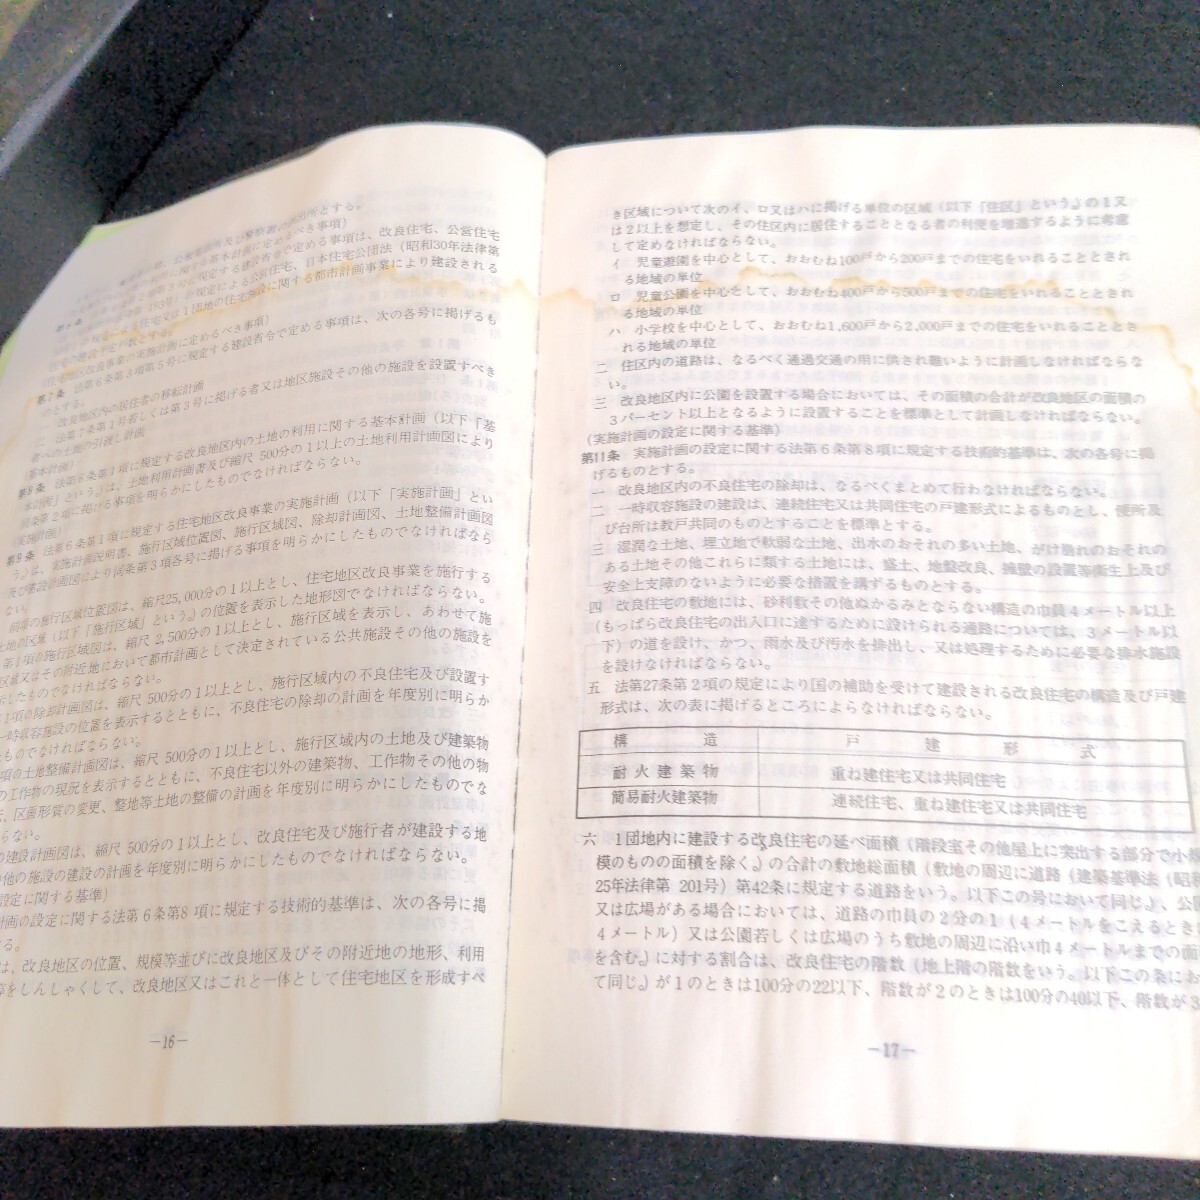 事項は、改良住宅、公営住宅
日本住宅公団法（昭和30年法律第
1団地の住宅施設に関する都市計画事業により建設される
第7条 法第6条第3項第5号に規定する建設省令で定める事項は、次の各号に掲げるも
のとする。
一 改良地区内の居住者の移転計画
二 法第7条第1号若しくは第3号に掲げる者又は地区施設その他の施設を設置すべき
者への土地の引渡し計画
（基本計画）
第8条 法第6条第1項に規定する改良地区内の土地の利用に関する基本計画（以下「基
本計画」という。）は、土地利用計画書及び縮尺 500分の1以上の土地利用計画図により
同条第2項に掲げる事項を明らかにしたものでなければならない。
（実施計画）
第9条 法第6条第1項に規定する住宅地区改良事業の実施計画（以下「実施計画」とい
う。）は、実施計画説明書、施行区域位置図、施行区域図、除却計画図、土地整備計画図
及び建設計画図により同条第3項各号に掲げる事項を明らかにしたものでなければなら
ない。
前項の施行区域位置図は、縮尺25,000分の1以上とし、住宅地区改良事業を施行する
土地の区域（以下「施行区域」という。）の位置を表示した地形図でなければならない。
第1項の施行区域図は、縮尺 2,500分の1以上とし、施行区域を表示し、あわせて施
区域又はその附近地において都市計画として決定されている公共施設その他の施設を
示したものでなければならない。
1項の除却計画図は、縮尺 500分の1以上とし、施行区域内の不良住宅及び設置す
一時収容施設の位置を表示するとともに、不良住宅の除却の計画を年度別に明らか
ものでなければならない。
項の土地整備計画図は、縮尺 500分の1以上とし、施行区域内の土地及び建築物
の工作物の現況を表示するとともに、不良住宅以外の建築物、工作物その他の物
、区画形質の変更、整地等土地の整備の計画を年度別に明らかにしたものでな
らない。
の建設計画図は、縮尺 500分の1以上とし、改良住宅及び施行者が建設する地
の他の施設の建設の計画を年度別に明らかにしたものでなければならない。
設定に関する基準）
計画の設定に関する法第6条第8項に規定する技術的基準は、次の各号に掲
る。
は、改良地区の位置、規模等並びに改良地区及びその附近地の地形、利用
等をしんしゃくして、改良地区又はこれと一体として住宅地区を形成すべ
—16—
き区域について次のイ、ロ又はハに掲げる単位の区域（以下「住区」という。）の1又
は2以上を想定し、その住区内に居住することとなる者の利便を増進するように考慮
して定めなければならない。
イ 児童遊園を中心として、おおむね100戸から200戸までの住宅をいれることとされ
る地域の単位
ロ 児童公園を中心として、おおむね400戸から500戸までの住宅をいれることとされ
る地域の単位
ハ 小学校を中心として、おおむね1,600戸から2,000戸までの住宅をいれることとさ
れる地域の単位
二 住区内の道路は、なるべく通過交通の用に供され難いように計画しなければならな
い。
三 改良地区内に公園を設置する場合においては、その面積の合計が改良地区の面積の
3パーセント以上となるように設置することを標準として計画しなければならない。
（実施計画の設定に関する基準）
第11条 実施計画の設定に関する法第6条第8項に規定する技術的基準は、次の各号に掲
げるものとする。
一 改良地区内の不良住宅の除却は、なるべくまとめて行わなければならない。
二 一時収容施設の建設は、連続住宅又は共同住宅の戸建形式によるものとし、便所及
び台所は数戸共同のものとすることを標準とする。
三 湿潤な土地、埋立地で軟弱な土地、出水のおそれの多い土地、がけ崩れのおそれの
ある土地その他これらに類する土地には、盛土、地盤改良、擁壁の設置等衛生上及び
安全上支障のないように必要な措置を講ずるものとする。
四 改良住宅の敷地には、砂利敷その他ぬかるみとならない構造の巾員4メートル以上
（もっぱら改良住宅の出入口に達するために設けられる通路については、3メートル以
下）の道を設け、かつ、雨水及び汚水を排出し、又は処理するために必要な排水施設
を設けなければならない。
五 法第27条第2項の規定により国の補助を受けて建設される改良住宅の構造及び戸建
形式は、次の表に掲げるところによらなければならない。
構造 戸建形式
耐火建築物 重ね建住宅又は共同住宅
簡易耐火建築物 連続住宅、重ね建住宅又は共同住宅
六 1団地内に建設する改良住宅の延べ面積（階段室その他屋上に突出する部分で小規
模のものの面積を除く。）の合計の敷地総面積（敷地の周辺に道路（建築基準法（昭和
25年法律第 201号）第42条に規定する道路をいう。以下この号において同じ。）、公園
又は広場がある場合においては、道路の巾員の2分の1（4メートルをこえるときは
4メートル）又は公園若しくは広場のうち敷地の周辺に沿い巾4メートルまでの面
を含む。）に対する割合は、改良住宅の階数（地上階の階数をいう。以下この条にお
て同じ。）が1のときは100分の22以下、階数が2のときは100分の40以下、階数が3
—17—